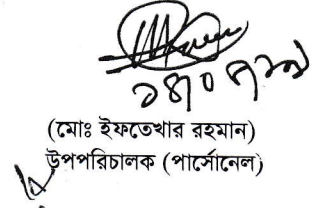 (মোঃ ইফতেখার রহমান)
উপপরিচালক (পার্সোনেল)